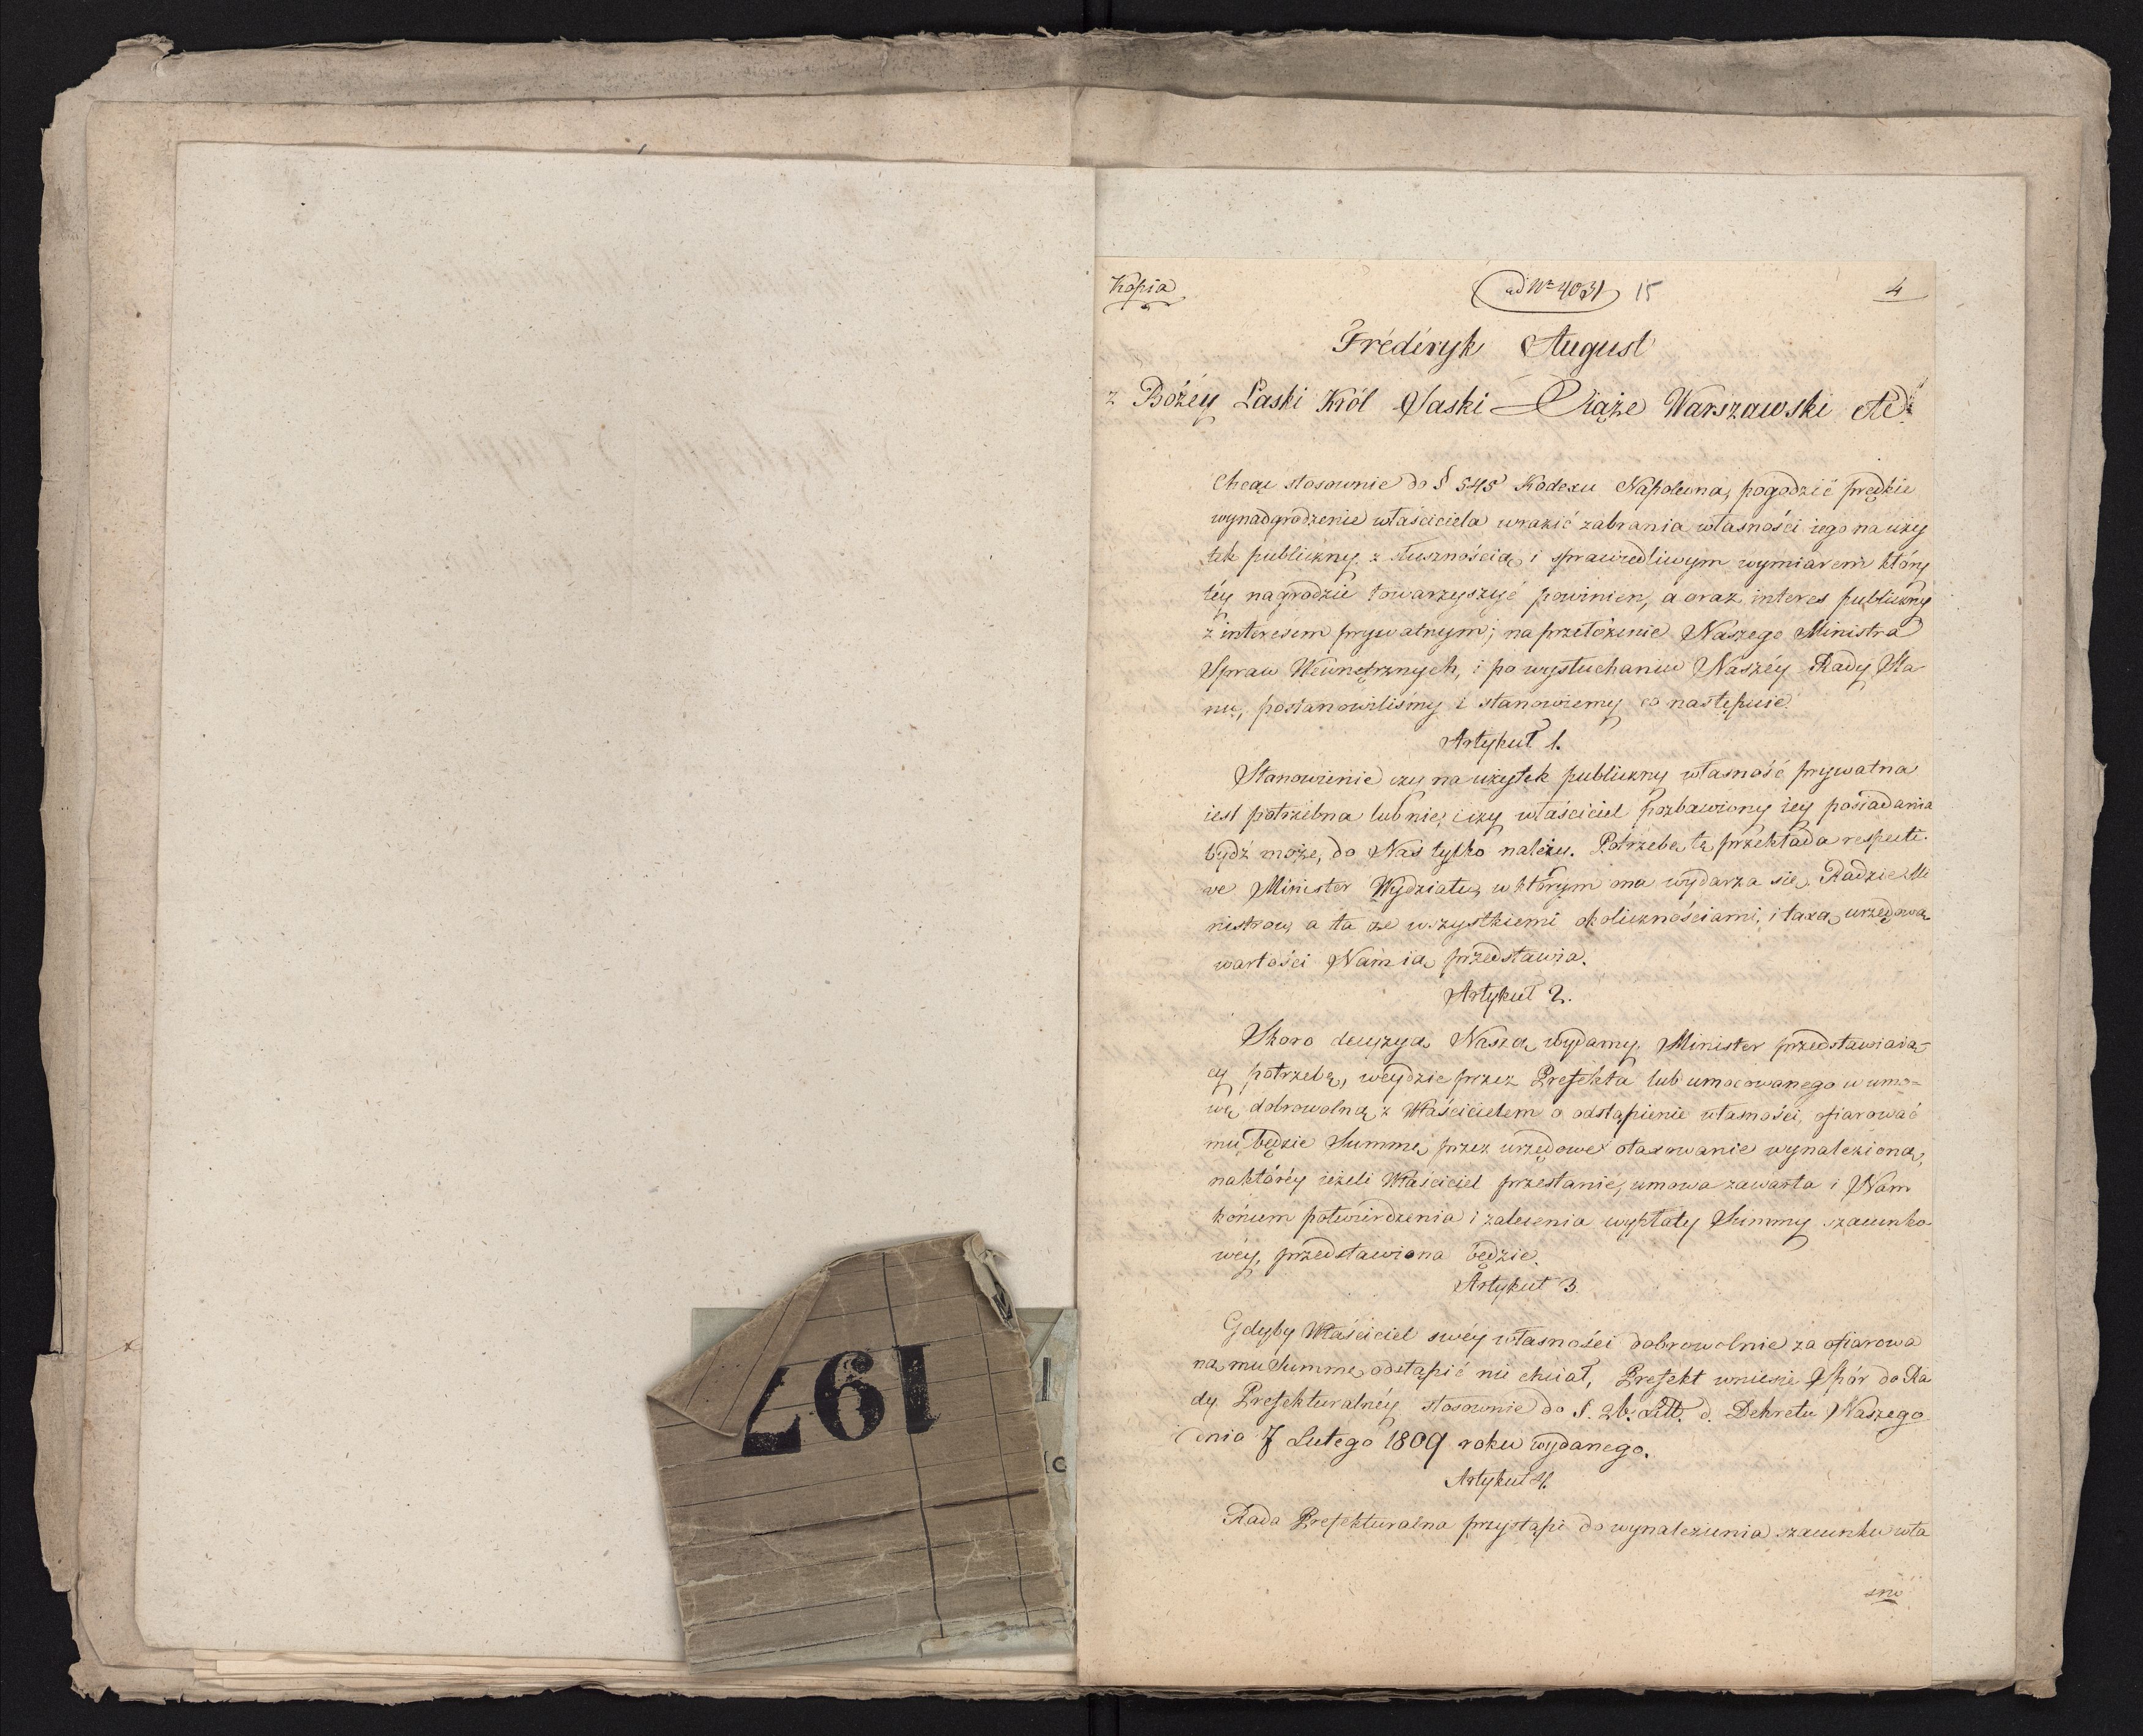 Kopia
ad Nr 4031 15
4
Fréderyk August
z Bożéy Łaski Król Saski Xiąże Warszawski etc.
Chcąc stosownie do § 545 Kodexu Napoleona, pogodzić prędkie
wynadgrodzenie właściciela w razie zabrania własności iego na uży
tek publiczny, z słusznością i sprawiedliwym wymiarem który
téy nagrodzie towarzyszyć powinien, a oraz interes publiczny
z interesem prywatnym; na przełożenie Naszego Ministra
Spraw Wewnętrznych, i po wysłuchaniu Naszéy Rady Sta
nu, postanowiliśmy i stanowiemy co następuie
Artykuł 1.
Stanowienie czy na użytek publiczny własność prywatna
iest potrzebna lub nie, i czy właściciel pozbawiony iey posiadania
bydź może, do Nas tylko należy. Potrzebę tę przekłada respecti
ve Minister Wydziału, w którym ona wydarza się, Radzie Mi
nistrow, a ta ze wszystkiemi okolicznościami, i taxą urzędową
wartości Nam ią przedstawia.
Artykuł 2.
Skoro decyzyą Naszą wydamy, Minister przedstawiaią-
cy potrzebę, weydzie przez Prefekta lub umocowanego w umo-
wę dobrowolną z Właścicielem o odstąpienie własności, ofiarować
mu będzie Summę, przez urzędowe otaxowanie wynalezioną,
na któréy ieżeli Właściciel przestanie, umowa zawarta i Nam
końcem potwierdzenia i zalecenia wypłaty Summy szacunko
wéy, przedstawiona będzie.
Artykuł 3.
Gdyby Właściciel swéy własności dobrowolnie za ofiarowa
ną mu Summę odstąpić nie chciał, Prefekt wniesie Spór do Ra
dy Prefekturalnéy stosownie do §. 26. Litt. d. Dekretu Naszego
dnia 7 Lutego 1809 roku wydanego.
Artykuł 4.
Rada Prefekturalna przystąpi do wynalezienia szacunku wła
197